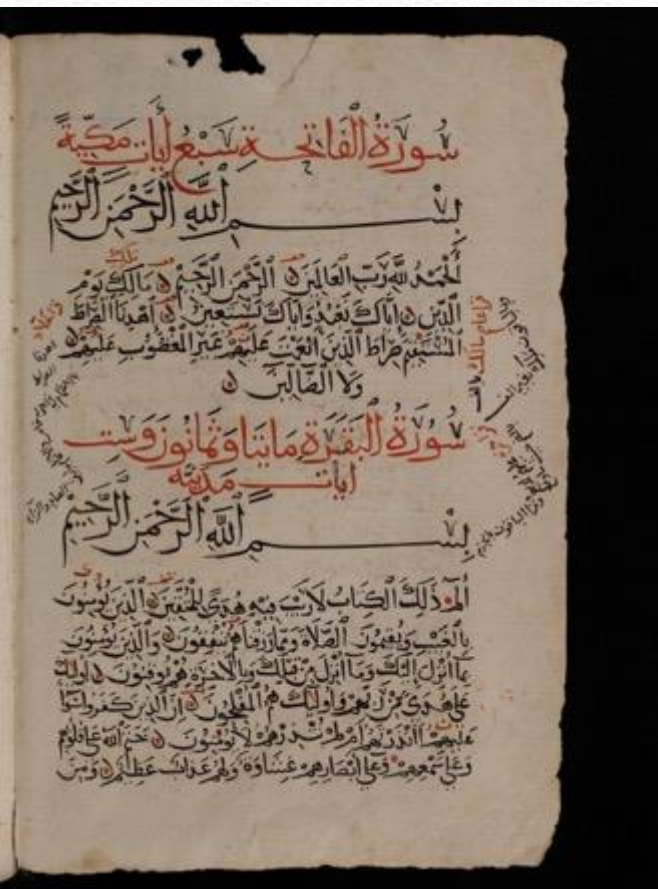 سُورَةُ الْفَاتِحَةِ سَبْعُ أَيَاتٍ مَكِّيَّةً
بِسْمِ اللَّهِ الرَّحْمَنِ الرَّحِيمِ
اَلْحَمْدُ لِلَّهِ رَبِّ الْعَالَمِينَ الرَّحْمَنِ الرَّحِيمِ مَالِكِ يَوْمِ
الدِّينِ اِيَّاكَ نَعْبُدُ وَاِيَّاكَ نَسْتَعِينُ اَهْدِنَا الصِّرَاطَ
الْمُسْتَقِيمَ صِرَاطَ الَّذِينَ اَنْعَمْتَ عَلَيْهِمْ غَيْرِ الْمَغْضُوبِ عَلَيْهِمْ
وَلَا الضَّالِّينَ
سُورَةُ الْبَقَرَةِ مَايَتَا وَثَمَانُونَ وَسِت
ايات مَدَنِيَّه
بِسْمِ اللَّهِ الرَّحْمَنِ الرَّحِيمِ
الم ذَلِكَ الْكِتَابُ لَا رَيْبَ فِيهِ هُدًى لِلْمُتَّقِينَ الَّذِينَ يُؤْمِنُونَ
بِالْغَيْبِ وَيُقِيمُونَ الصَّلَاةَ وَمِمَّا رَزَقْنَاهُمْ يُنْفِقُونَ وَالَّذِينَ يُؤْمِنُونَ
بِمَا اُنْزِلَ اِلَيْكَ وَمَا اُنْزِلَ مِنْ قَبْلِكَ وَبِالْآخِرَةِ هُمْ يُوقِنُونَ اُولَيِكَ
عَلَى هُدًى مِنْ رَبِّهِمْ وَاُولَيِكَ هُمُ الْمُفْلِحُونَ اِنَّ الَّذِينَ كَفَرُوا سَوَا
عَلَيْهِمْ اَأَنْذَرْتَهُمْ اَمْ لَمْ تُنْذِرْهُمْ لَا يُؤْمِنُونَ خَتَمَ اللَّهُ عَلَى قُلُوبِهِمْ
وَعَلَى سَمْعِهِمْ وَعَلَى اَبْصَارِهِمْ غِشَاوَةٌ وَلَهُمْ عَذَابٌ عَظِيمٌ وَمِنَ